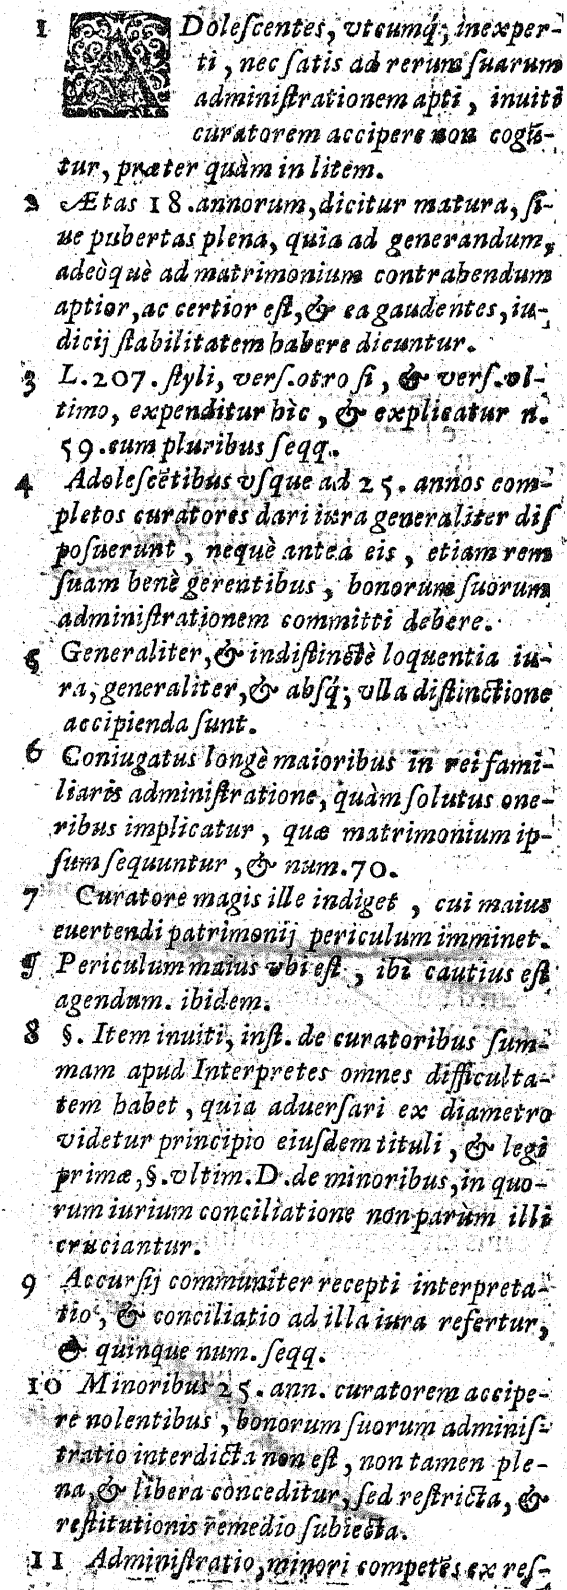 1 ADoleſcentes, vtcumq́; inexper-
ti, nec ſatis ad rerum ſuarum
adminiſtrationem apti, inuiti
curatorem accipere non cogū-
tur, præter quàm in litem.
2 Ætas 18. annorum, dicitur matura, ſi-
ue pubertas plena, quia ad generandum,
adeòquè ad matrimonium contrahendum
aptior, ac certior eſt, & ea gaudentes, iu-
dicij ſtabilitatem habere dicuntur.
3 L. 207. ſtyli, verſ. otro ſi, & verſ. vl-
timo, expenditur hìc, & explicatur n.
59. cum pluribus ſeqq.
4 Adoleſcētibus vſque ad 25. annos com-
pletos curatores dari iura generaliter diſ
poſuerunt, nequè antea eis, etiam rem
ſuam benè gerentibus, bonorum ſuorum
adminiſtrationem committi debere.
5 Generaliter, & indiſtinctè loquentia iu-
ra, generaliter, & abſq́; vlla diſtinctione
accipienda ſunt.
6 Coniugatus longè maioribus in rei fami-
liaris adminiſtratione, quàm ſolutus one-
ribus implicatur, quæ matrimonium ip-
ſum ſequuntur, & num. 70.
7 Curatore magis ille indiget, cui maius
euertendi patrimonij periculum imminet.
¶ Periculum maius vbi eſt, ibi cautius eſt
agendum. ibidem.
8 §. Item inuiti, inſt. de curatoribus ſum-
mam apud Interpretes omnes difficulta-
tem habet, quia aduerſari ex diametro
videtur principio eiuſdem tituli, & legi
primæ, §. vltim. D. de minoribus, in quo-
rum iurium conciliatione non parùm illi
cruciantur.
9 Accurſij communiter recepti interpreta-
tio, & conciliatio ad illa iura refertur,
& quinque num. ſeqq.
10 Minoribus 25. ann. curatorem accipe-
re nolentibus, bonorum ſuorum adminiſ-
tratio interdicta non eſt, non tamen ple-
na, & libera conceditur, ſed reſtricta, &
reſtitutionis remedio ſubiecta.
11 Adminiſtratio, minori competēs ex reſ-